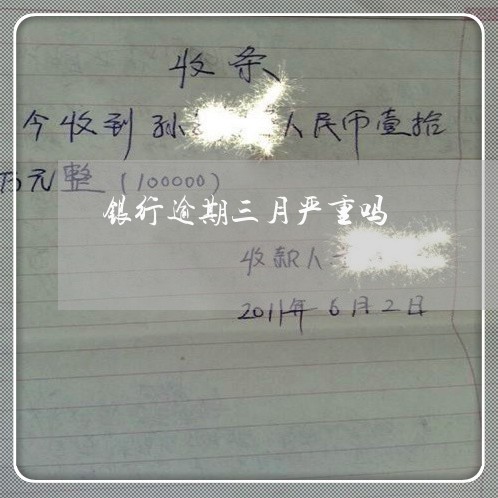 收条
今收到孙人民币壹拾
万元整(100000)
銀行逾期三月严重吗
收款人
2011年6月2日